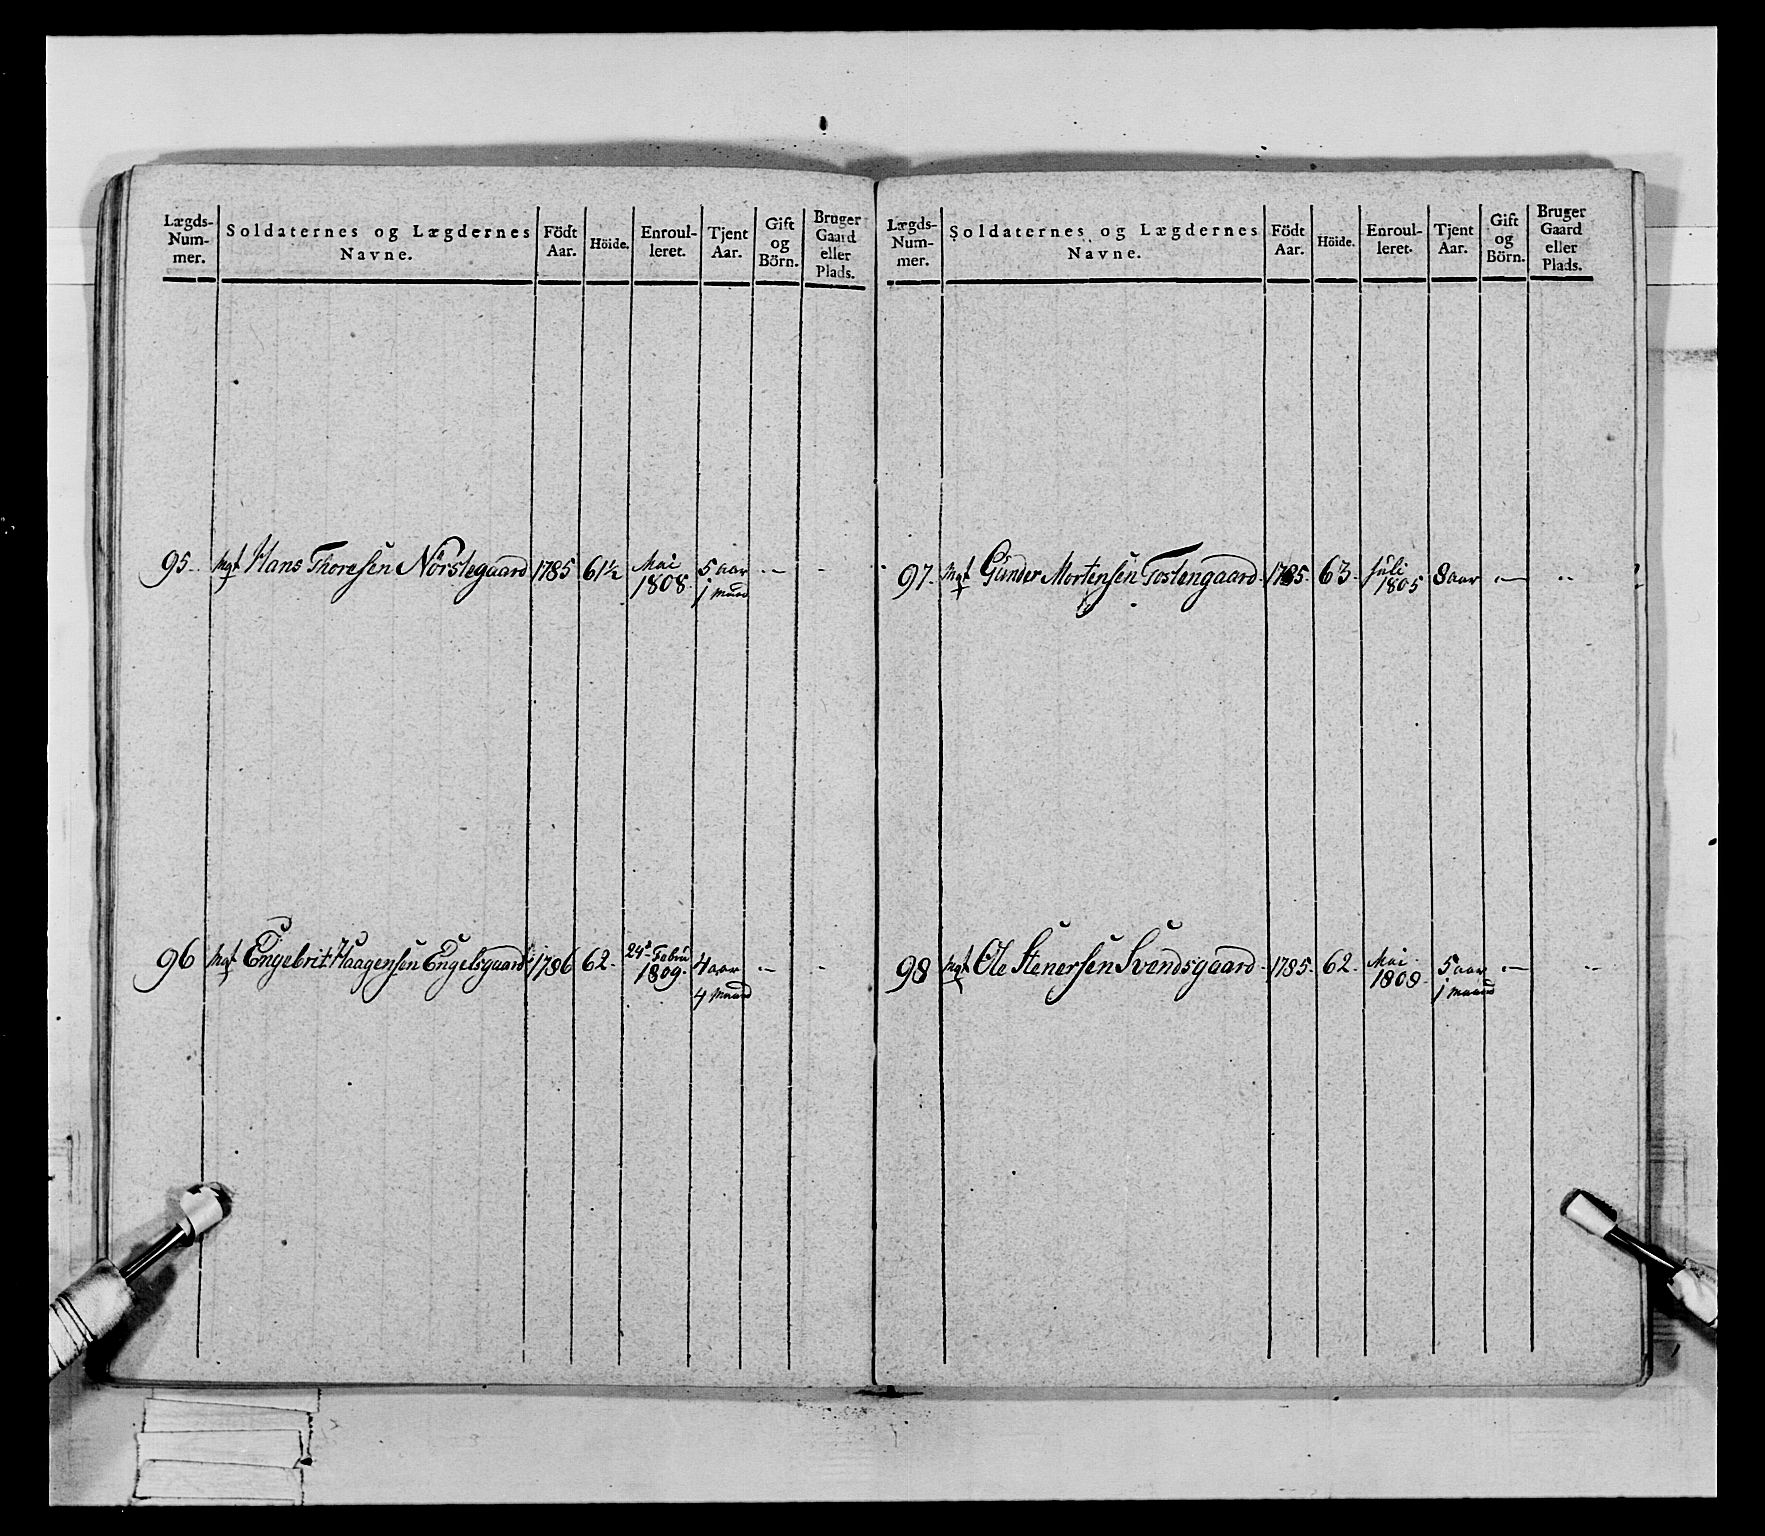 Lægds-
Num-
mer.
Soldaternes og Lægdernes
Navne.
Födt
Aar.
Höide.
Enroul-
leret.
Tjent
Aar.
Gift
og
Börn.
Bruger
Gaard
eller
Plads.
95. Mgf Hans Thoresen Nörstegaard 1785 61½ Mai 1808. 5 aar 1 maaned
96 Mgf Engebrit Haagensen Engelsgaard 1786 62. 24d Febru 1809. 4 aar 4 Maaned
Lægds-
Num-
mer.
Soldaternes og Lægdernes
Navne.
Födt
Aar.
Höide.
Enroul-
leret.
Tjent
Aar.
Gift
og
Börn.
Bruger
Gaard
eller
Plads.
97. Mgf Gunder Mortensen Tostengaard 1785. 63. Juli 1805 8 aar
98 Mgf Ole Stenersen Svendsgaard 1785. 62. Mai 1808. 5 aar 1 maaned